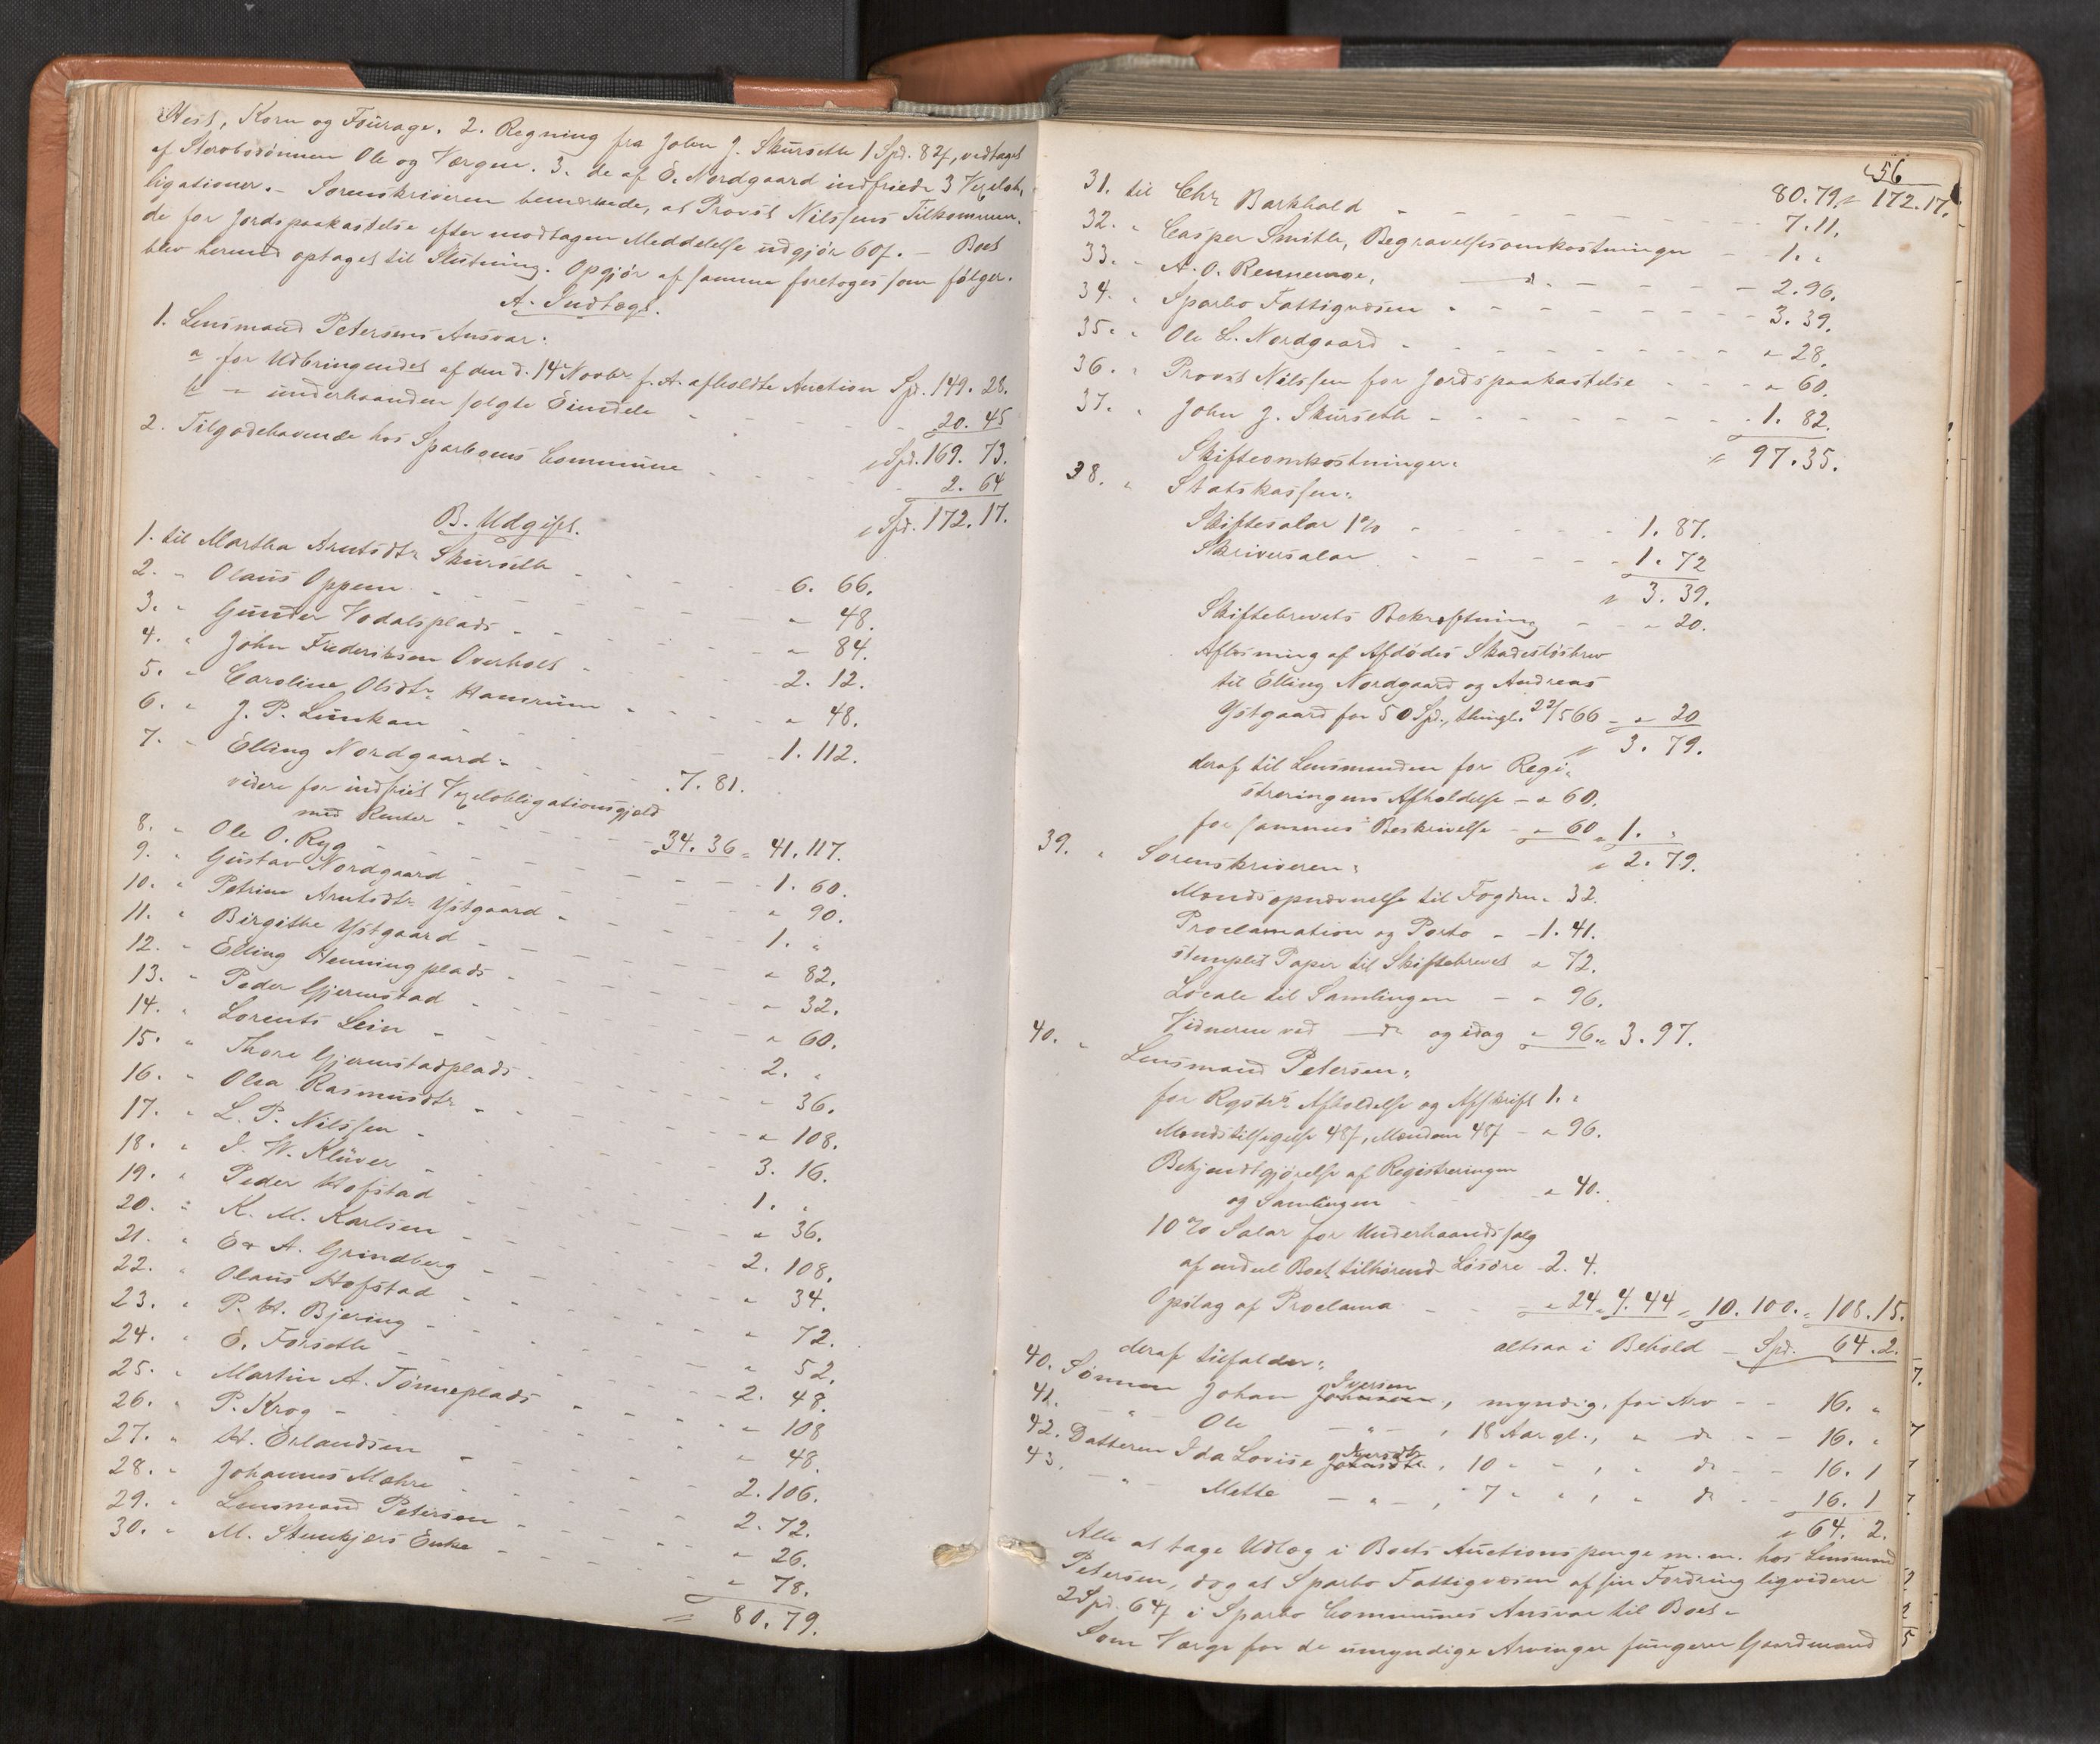 Hest, Korn og Fourage. 2. Regning fra John J. Skurseth 1 Spd. 82ſ, vedtaget
af Stervbosønnen Ole og Værgen. 3. de af E. Nordgaard indfriede 3 Vexelob-
ligationer. – Sorenskriveren bemærkede, at Provst Nilssens Tilkommen-
de for Jordspaakastelse efter modtagen Meddelelse udgjør 60ſ. – Boet
blev hermed optaget til Slutning. Opgjør af samme foretoges som følger.
A. Indtægt.
1. Lensmand Petersens Ansvar:
a for Udbringendet af den d. 14 Novbr f. A. afholdte Auction Spd. 149. 28.
b – underhaanden solgte Eiendele - - - 20. 45
" Spd. 169. 73.
2. Tilgodehavende hos Sparboens Commune - - - 2. 64
" Spd. 172. 17.
B. Udgift.
1. til Martha Arntsdtr Skurseth - - - 6. 66.
2. " Olaus Oppem - - - " 48.
3. " Gunder Vodalsplads - - - " 84.
4. " John Frederiksen Overholt - - - 2. 12.
5. " Caroline Olsdtr Hamrum - - - " 48.
6. " J. P. Linkan - - - 1. 112.
7. " Elling Nordgaard: - - - 7. 81.
videre for indfriet Vexelobligationsgjeld
med Renter - - - 34. 36 " 41. 117.
8. " Ole O. Ryg - - - 1. 60.
9. " Gustav Nordgaard - - - " 90.
10. " Petrine Arntsdtr Ystgaard - - - 1. "
11. " Birgitte Ystgaard - - - " 82.
12. " Elling Henningplads - - - " 32.
13. " Peder Gjermstad - - - " 60.
14. " Lorents Lein - - - 2. "
15. " Thore Gjermstadplads - - - " 36.
16. " Olea Rasmusdtr - - - " 108.
17. " L. P. Nilssen - - - 3. 16.
18. " I. W. Klüver - - - 1. "
19. " Peder Hofstad - - - " 36.
20. " K. M. Karlsen - - - 2. 108.
21. " E & A. Grindberg - - - " 34.
22. " Olaus Hofstad - - - " 72.
23. " P. H. Bjering - - - " 52.
24. " E. Forseth - - - 2. 48.
25. " Martin A. Tønneplads - - - " 108
26. " P. Krog - - - " 48.
27. " H. Erlandsen - - - 2. 106.
28. " Johannes Mæhre - - - 2. 72.
29. " Lensmand Petersen - - - " 26.
30. " M. Stenkjers Enke - - - " 78.
" 80. 79.
56
80. 79. " 172. 17.
31. til Chr Barkhald - - - 7. 11.
32. " Casper Smith, Begravelsesomkostninger - 1. "
33. " A. O. Rennemoe, — d° - - - 2. 96.
34. " Sparbo Fattigvæsen - - - 3. 39.
35. " Ole L. Nordgaard - - - " 28.
36. " Provst Nilssen for Jordspaakastelse - - - " 60.
37. " John J. Skurseth - - - 1. 82.
" 97. 35.
Skifteomkostninger:
38. " Statskassen:
Skiftesalar 1% - - - 1. 87.
Skriversalar - - - 1. 72
" 3. 39.
Skiftebrevets Bekræftning - - " 20.
Aflæsning af Afdødes Skadesløsbrev
til Elling Nordgaard og Andreas
Ystgaard for 50 Spd., thingl. 22/5 66 - " 20
" 3. 79.
deraf til Lensmanden for Regi-
streringens Afholdelse - " 60.
for sammes Beskrivelse - " 60 " 1. "
" 2. 79.
39. " Sorenskriveren:
Mændsopnævnelse til Fogden " 32.
Proclamation og Porto - 1. 41.
stemplet Papir til Skiftebrevet " 72.
Locale til Samlingen - " 96.
Vidnerne ved — d° og idag " 96 " 3. 97.
40. " Lensmand Petersen:
for Regstrs Afholdelse og Afskrift 1. "
Mændstilsigelse 48ſ, Mændene 48ſ - " 96.
Bekjendtgjørelse af Registreringen
og Samlingen - - - " 40.
10% Salar for Underhaandssalg
af endel Boet tilhørende Løsøre 2. 4.
Opslag af Proclama - - " 24 " 4. 44 " 10. 100. " 108. 15.
altsaa i Behold - Spd. 64. 2.
deraf tilfalder:
40. Sønnen Johan Johansen Iversen, myndig, for Arv - - 16. "
41. " Ole - " - , 18 Aar gl., " d° - - 16. "
42. Datteren Ida Lovise Johansdtr Iversdtr, 10 " " , " d° - - 16. 1
43. " Mette - " - , 7 " " , " d° - - 16. 1
" 64. 2.
Alle at tage Udlæg i Boets Auctionspenge m. m. hos Lensmand
Petersen, dog at Sparbo Fattigvæsen af sin Fordring ligviderer
2 Spd. 64ſ i Sparbo Communes Ansvar til Boet. –
Som Værge for de umyndige Arvinger fungerer Gaardmand